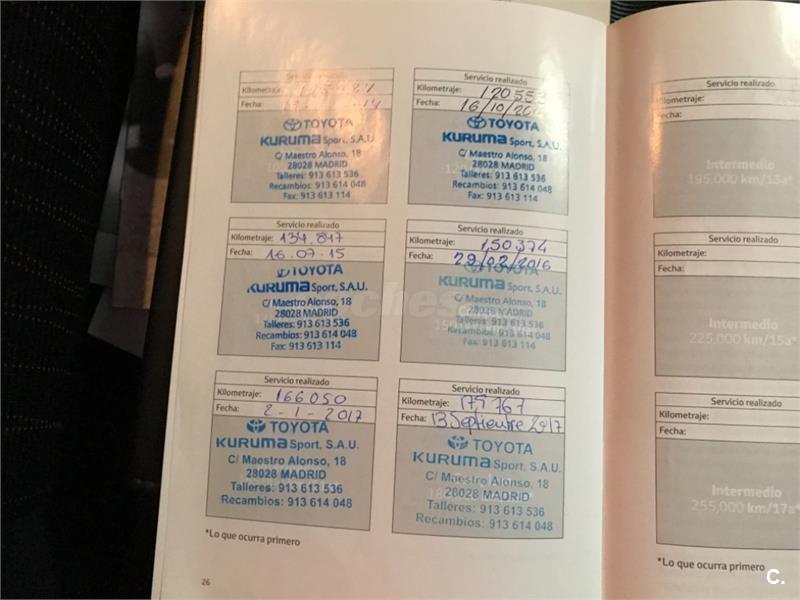 Servicio realizado
Kilometraje:
Fecha:
TOYOTA
KURUMA Sport, S.A.U.
C/ Maestro Alonso, 18
28028 MADRID
Talleres: 913 613 536
Recambios: 913 614 048
Fax: 913 613 114
Servicio realizado
Kilometraje: 120553
Fecha: 16/10/
TOYOTA
KURUMA Sport, S.A.U.
C/ Maestro Alonso, 18
28028 MADRID
Talleres: 913 613 536
Recambios: 913 614 048
Fax: 913 613 114
Servicio realizado
Kilometraje: 134.847
Fecha: 16.07.15
TOYOTA
KURUMA Sport, S.A.U.
C/ Maestro Alonso, 18
28028 MADRID
Talleres: 913 613 536
Recambios: 913 614 048
Fax: 913 613 114
Servicio realizado
Kilometraje: 150374
Fecha: 29/02/2016
TOYOTA
KURUMA Sport, S.A.U.
C/ Maestro Alonso, 18
28028 MADRID
Talleres: 913 613 536
Recambios: 913 614 048
Fax: 913 613 114
Servicio realizado
Kilometraje: 166050
Fecha: 2-1-2017
TOYOTA
KURUMA Sport, S.A.U.
C/ Maestro Alonso, 18
28028 MADRID
Talleres: 913 613 536
Recambios: 913 614 048
Servicio realizado
Kilometraje: 175767
Fecha: 13 Septiembre 2017
TOYOTA
KURUMA Sport, S.A.U.
C/ Maestro Alonso, 18
28028 MADRID
Talleres: 913 613 536
Recambios: 913 614 048
*Lo que ocurra primero
26
Servicio realizado
Kilometraje:
Fecha:
Intermedio
195.000 km/13a*
Servicio realizado
Kilometraje:
Fecha:
Intermedio
225.000 km/15a*
Servicio realizado
Kilometraje:
Fecha:
Intermedio
255.000 km/17a*
*Lo que ocurra primero
C.